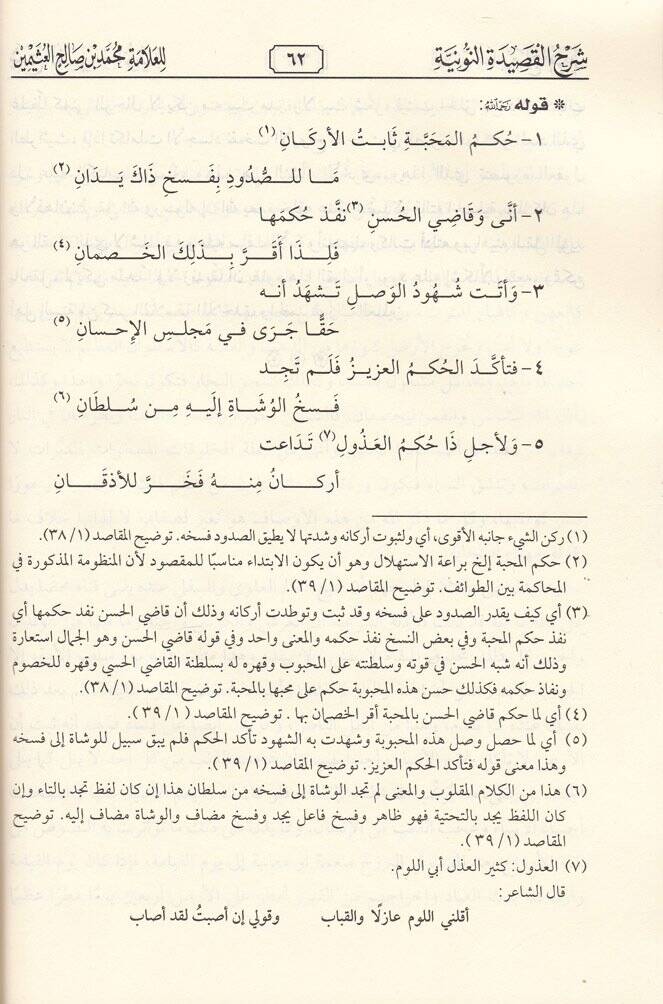 شرح القصيدة النونية
٦٢
للعلامة محمد بن صالح العثيمين
* قوله رحمه الله:
١- حُكمُ المَحَبَّةِ ثَابتُ الأركَانِ (١)
مَا للصُّدُودِ بِفَسخِ ذَاكَ يَدَانِ (٢)
٢- أنَّى وَقَاضِي الحُسنِ (٣) نفَّذَ حُكمَهَا
فَلِذَا أقَرَّ بِذَلِكَ الخَصمَانِ (٤)
٣- وَأتَت شُهُودُ الوَصلِ تَشهَدُ أنه
حَقًّا جَرَى في مَجلسِ الإحسانِ (٥)
٤- فتأكَّدَ الحُكمُ العزيزُ فَلَم تَجِد
فَسخُ الوُشَاةِ إلَيهِ مِن سُلطَانِ (٦)
٥- وَلأجلِ ذَا حُكمُ العَذُولِ (٧) تَدَاعت
أركَانُ مِنهُ فَخَرَّ للأذقَانِ
(١) ركن الشيء جانبه الأقوى، أي ولثبوت أركانه وشدتها لا يطيق الصدود فسخه. توضيح المقاصد (٣٨/١).
(٢) حكم المحبة إلخ براعة الاستهلال وهو أن يكون الابتداء مناسبًا للمقصود لأن المنظومة المذكورة في
المحاكمة بين الطوائف. توضيح المقاصد (٣٩/١).
(٣) أي كيف يقدر الصدود على فسخه وقد ثبت وتوطدت أركانه وذلك أن قاضي الحسن نفد حكمها أي
نفذ حكم المحبة وفي بعض النسخ نفذ حكمه والمعنى واحد وفي قوله قاضي الحسن وهو الجمال استعارة
وذلك أنه شبه الحسن في قوته وسلطنته على المحبوب وقهره له بسلطنة القاضي الحسي وقهره للخصوم
ونفاذ حكمه فكذلك حسن هذه المحبوبة حكم على محبها بالمحبة. توضيح المقاصد (٣٨/١).
(٤) أي لما حكم قاضي الحسن بالمحبة أقر الخصمان بها . توضيح المقاصد (٣٩/١).
(٥) أي لما حصل وصل هذه المحبوبة وشهدت به الشهود تأكد الحكم فلم يبق سبيل للوشاة إلى فسخه
وهذا معنى قوله فتأكد الحكم العزيز. توضيح المقاصد (٣٩/١).
(٦) هذا من الكلام المقلوب والمعنى لم تجد الوشاة إلى فسخه من سلطان هذا إن كان لفظ تجد بالتاء وإن
كان اللفظ يجد بالتحتية فهو ظاهر وفسخ فاعل يجد وفسخ مضاف والوشاة مضاف إليه. توضيح
المقاصد (٣٩/١).
(٧) العذول: كثير العذل أبي اللوم.
قال الشاعر:
أقلني اللوم عازلًا والقباب وقولي إن أصبتُ لقد أصاب